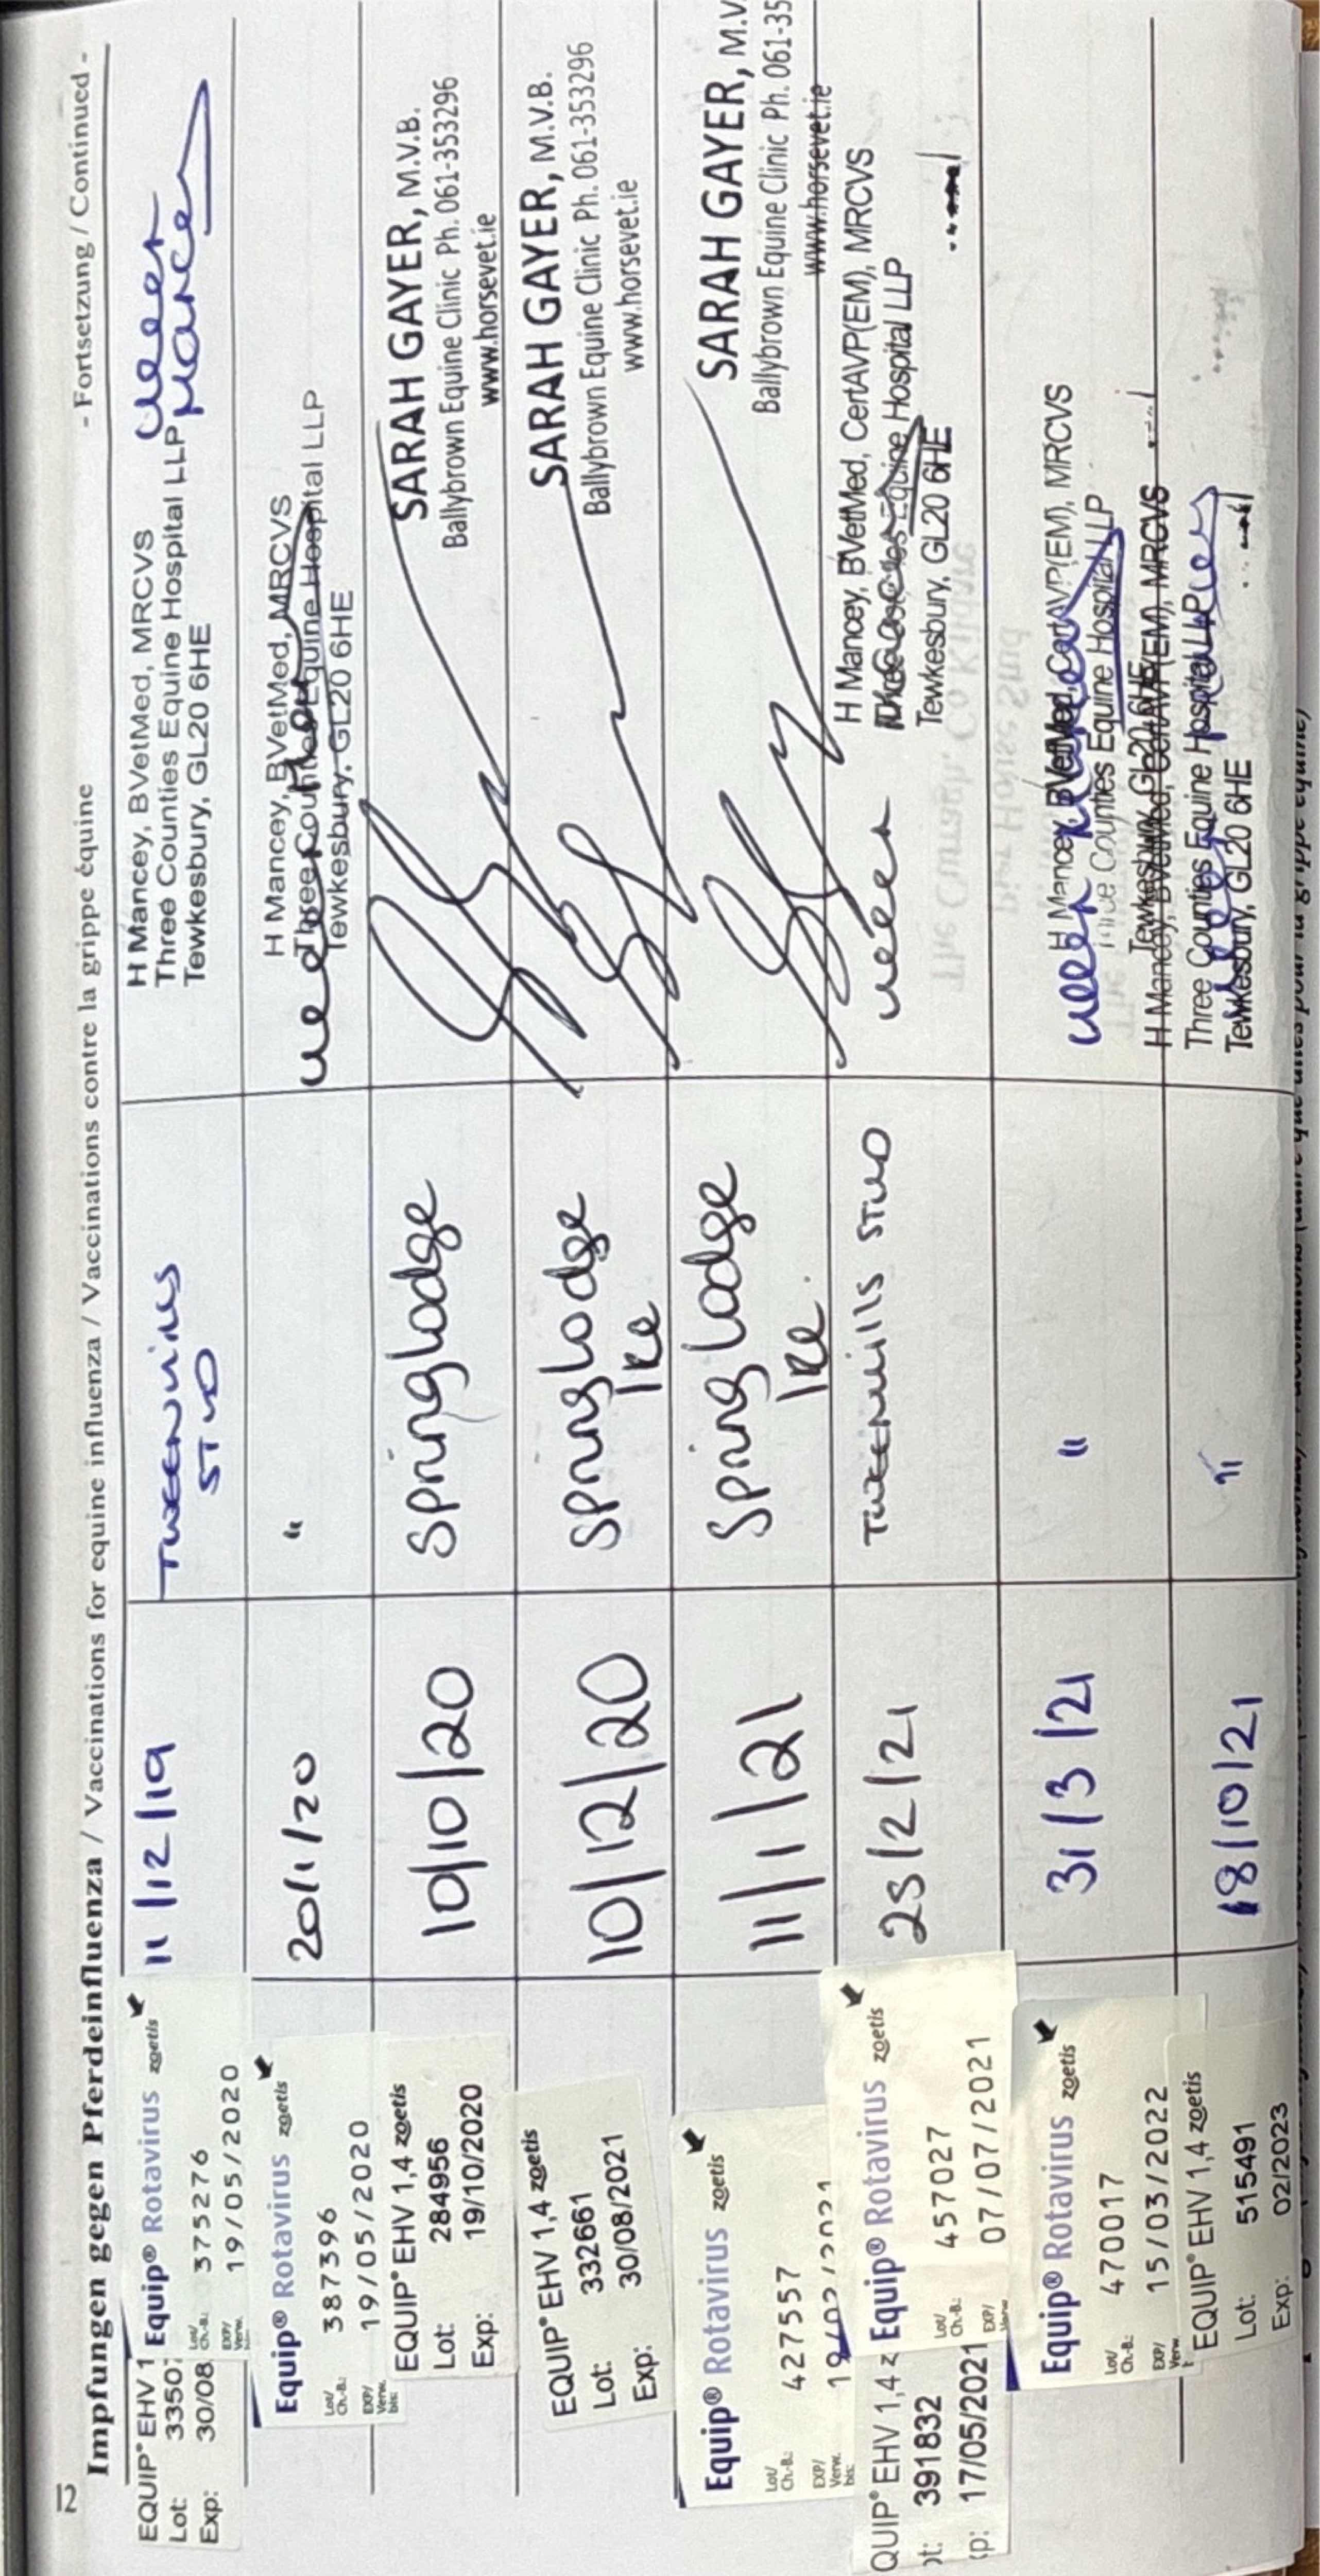 12
Impfungen gegen Pferdeinfluenza / Vaccinations for equine influenza / Vaccinations contre la grippe équine
- Fortsetzung / Continued -
EQUIP® EHV 1
Lot: 33507
Exp: 30/08
Equip® Rotavirus zoetis
Lot/
Ch.-B.: 375276
EXP/
Verw.
bis: 19/05/2020
11/12/19
TWEENHILLS
STUD
H Mancey, BVetMed, MRCVS
Three Counties Equine Hospital LLP
Tewkesbury, GL20 6HE
Equip® Rotavirus zoetis
Lot/
Ch.-B.: 387396
EXP/
Verw.
bis: 19/05/2020
20/1/20
"
H Mancey, BVetMed, MRCVS
Three Counties Equine Hospital LLP
Tewkesbury, GL20 6HE
EQUIP® EHV 1,4 zoetis
Lot: 284956
Exp: 19/10/2020
10/10/20
Springlodge
SARAH GAYER, M.V.B.
Ballybrown Equine Clinic Ph. 061-353296
www.horsevet.ie
EQUIP® EHV 1,4 zoetis
Lot: 332661
Exp: 30/08/2021
10/12/20
Spring Lodge
Ire
SARAH GAYER, M.V.B.
Ballybrown Equine Clinic Ph. 061-353296
www.horsevet.ie
Equip® Rotavirus zoetis
Lot/
Ch.-B.: 427557
EXP/
Verw.
bis:
11/1/21
Spring Lodge
Ire.
SARAH GAYER, M.V
Ballybrown Equine Clinic Ph. 061-35
www.horsevet.ie
QUIP® EHV 1,4 z
ot: 391832
xp: 17/05/2021
Equip® Rotavirus zoetis
Lot/
Ch.-B.: 457027
EXP/
Verw. 07/07/2021
23/2/21
Tweenhills STUD
H Mancey, BVetMed, CertAVP(EM), MRCVS
Three Counties Equine Hospital LLP
Tewkesbury, GL20 6HE
Equip® Rotavirus zoetis
Lot/
Ch.-B.: 470017
EXP/
Verw. 15/03/2022
31/3/21
"
H Mancey, BVetMed, CertAVP(EM), MRCVS
Three Counties Equine Hospital LLP
Tewkesbury, GL20 6HE
EQUIP® EHV 1,4 zoetis
Lot: 515491
Exp: 02/2023
18/10/21
"
H Mancey, BVetMed, CertAVP(EM), MRCVS
Three Counties Equine Hospital LLP
Tewkesbury, GL20 6HE